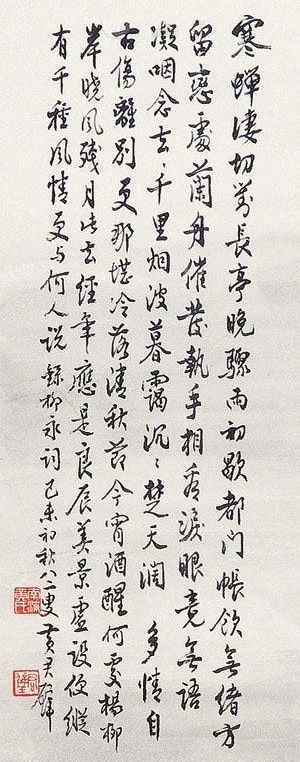 寒蟬淒切對長亭晚驟雨初歇都門帳飲無緒方
留戀處蘭舟催發執手相看淚眼竟無語
凝咽念去〻千里烟波暮靄沉〻楚天闊 多情自
古傷離別更那堪冷落清秋節今宵酒醒何處楊柳
岸曉風殘月此去經年應是良辰美景虛設便縱
有千種風情更与何人說 錄柳永詞 己未初秋八二叟 黃君璧